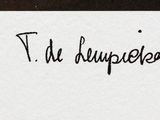 T. de Lempicka